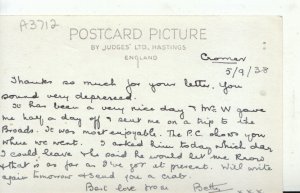 A3712
POSTCARD PICTURE
BY JUDGES' LTD., HASTINGS
ENGLAND
Cromer
5/9/38
Thanks so much for your letter. You
sound very depressed.
It has been a very nice day & Mr W gave
me half a day off & sent me on a trip to the
Broads. It was most enjoyable. The P.C. shows you
where we went. I asked him today which day
I could leave & he said he would let me know
that's as far as I've got at present. Will write
again tomorrow & send you a crab.
Best love Mon Betty
x x x